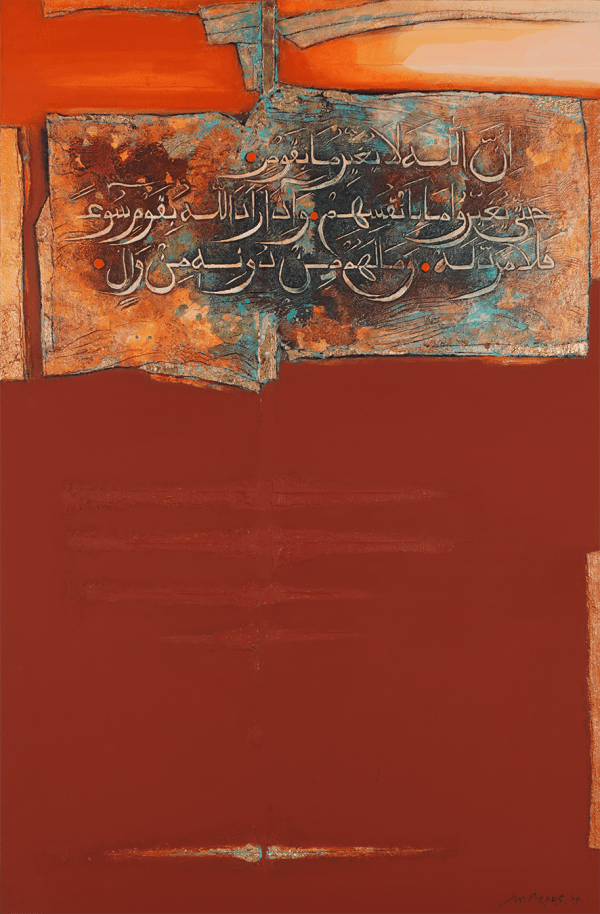 انّ اللّه لا يغيّر ما بقوم
حتّى يغيّروا ما بانفسهم واذا اراد اللّه بقوم سوءً
فلا مردّ له وما لهم من دونه من والٍ